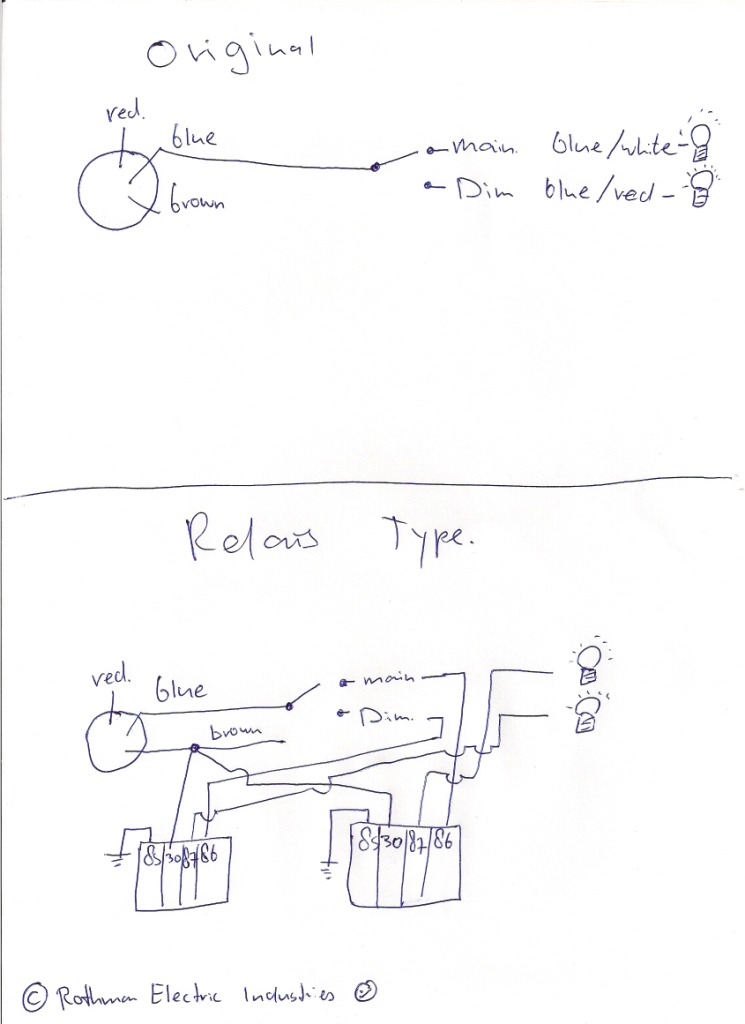 Original
red.
blue
main. blue/white
brown
Dim blue/red
Relais Type.
red.
blue
main
brown
Dim.
85 30 87 86
85 30 87 86
© Rothman Electric Industries